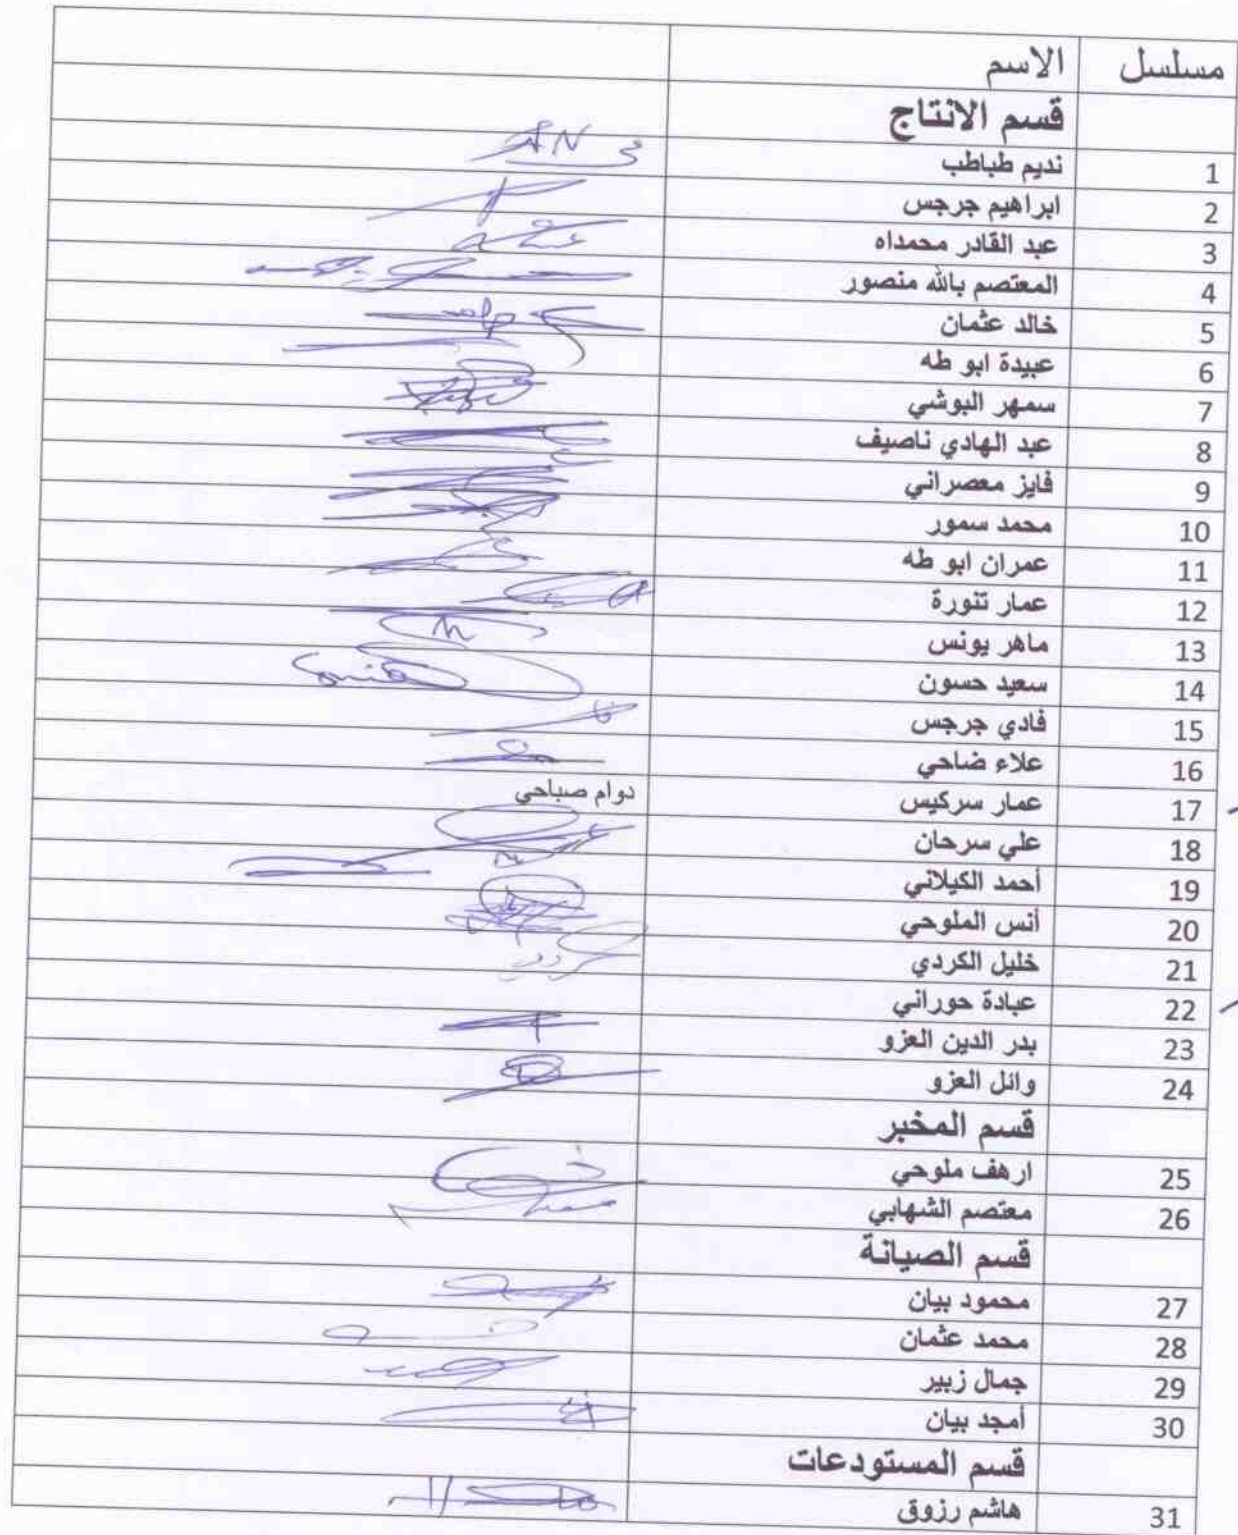 مسلسل الاسم
قسم الانتاج
1 نديم طباطب
2 ابراهيم جرجس
3 عبد القادر محمداه
4 المعتصم بالله منصور
5 خالد عثمان
6 عبيدة ابو طه
7 سمهر البوشي
8 عبد الهادي ناصيف
9 فايز معصراني
10 محمد سمور
11 عمران ابو طه
12 عمار تنورة
13 ماهر يونس
14 سعيد حسون
15 فادي جرجس
16 علاء ضاحي
17 عمار سركيس دوام صباحي
18 علي سرحان
19 أحمد الكيلاني
20 أنس الملوحي
21 خليل الكردي
22 عبادة حوراني
23 بدر الدين العزو
24 وائل العزو
قسم المخبر
25 ارهف ملوحي
26 معتصم الشهابي
قسم الصيانة
27 محمود بيان
28 محمد عثمان
29 جمال زبير
30 أمجد بيان
قسم المستودعات
31 هاشم رزوق